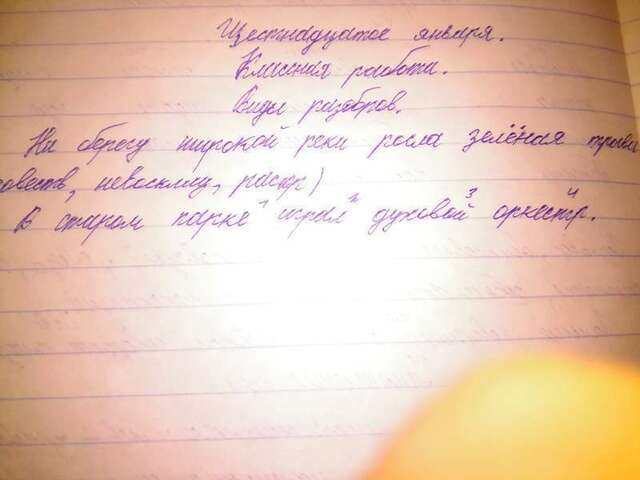 Шестнадцатое января.
Классная работа.
Виды разборов.
На берегу широкой реки росла зелёная трава
повеств, невосклиц, распр)
В старом парке играл духовой³ оркестр⁴.